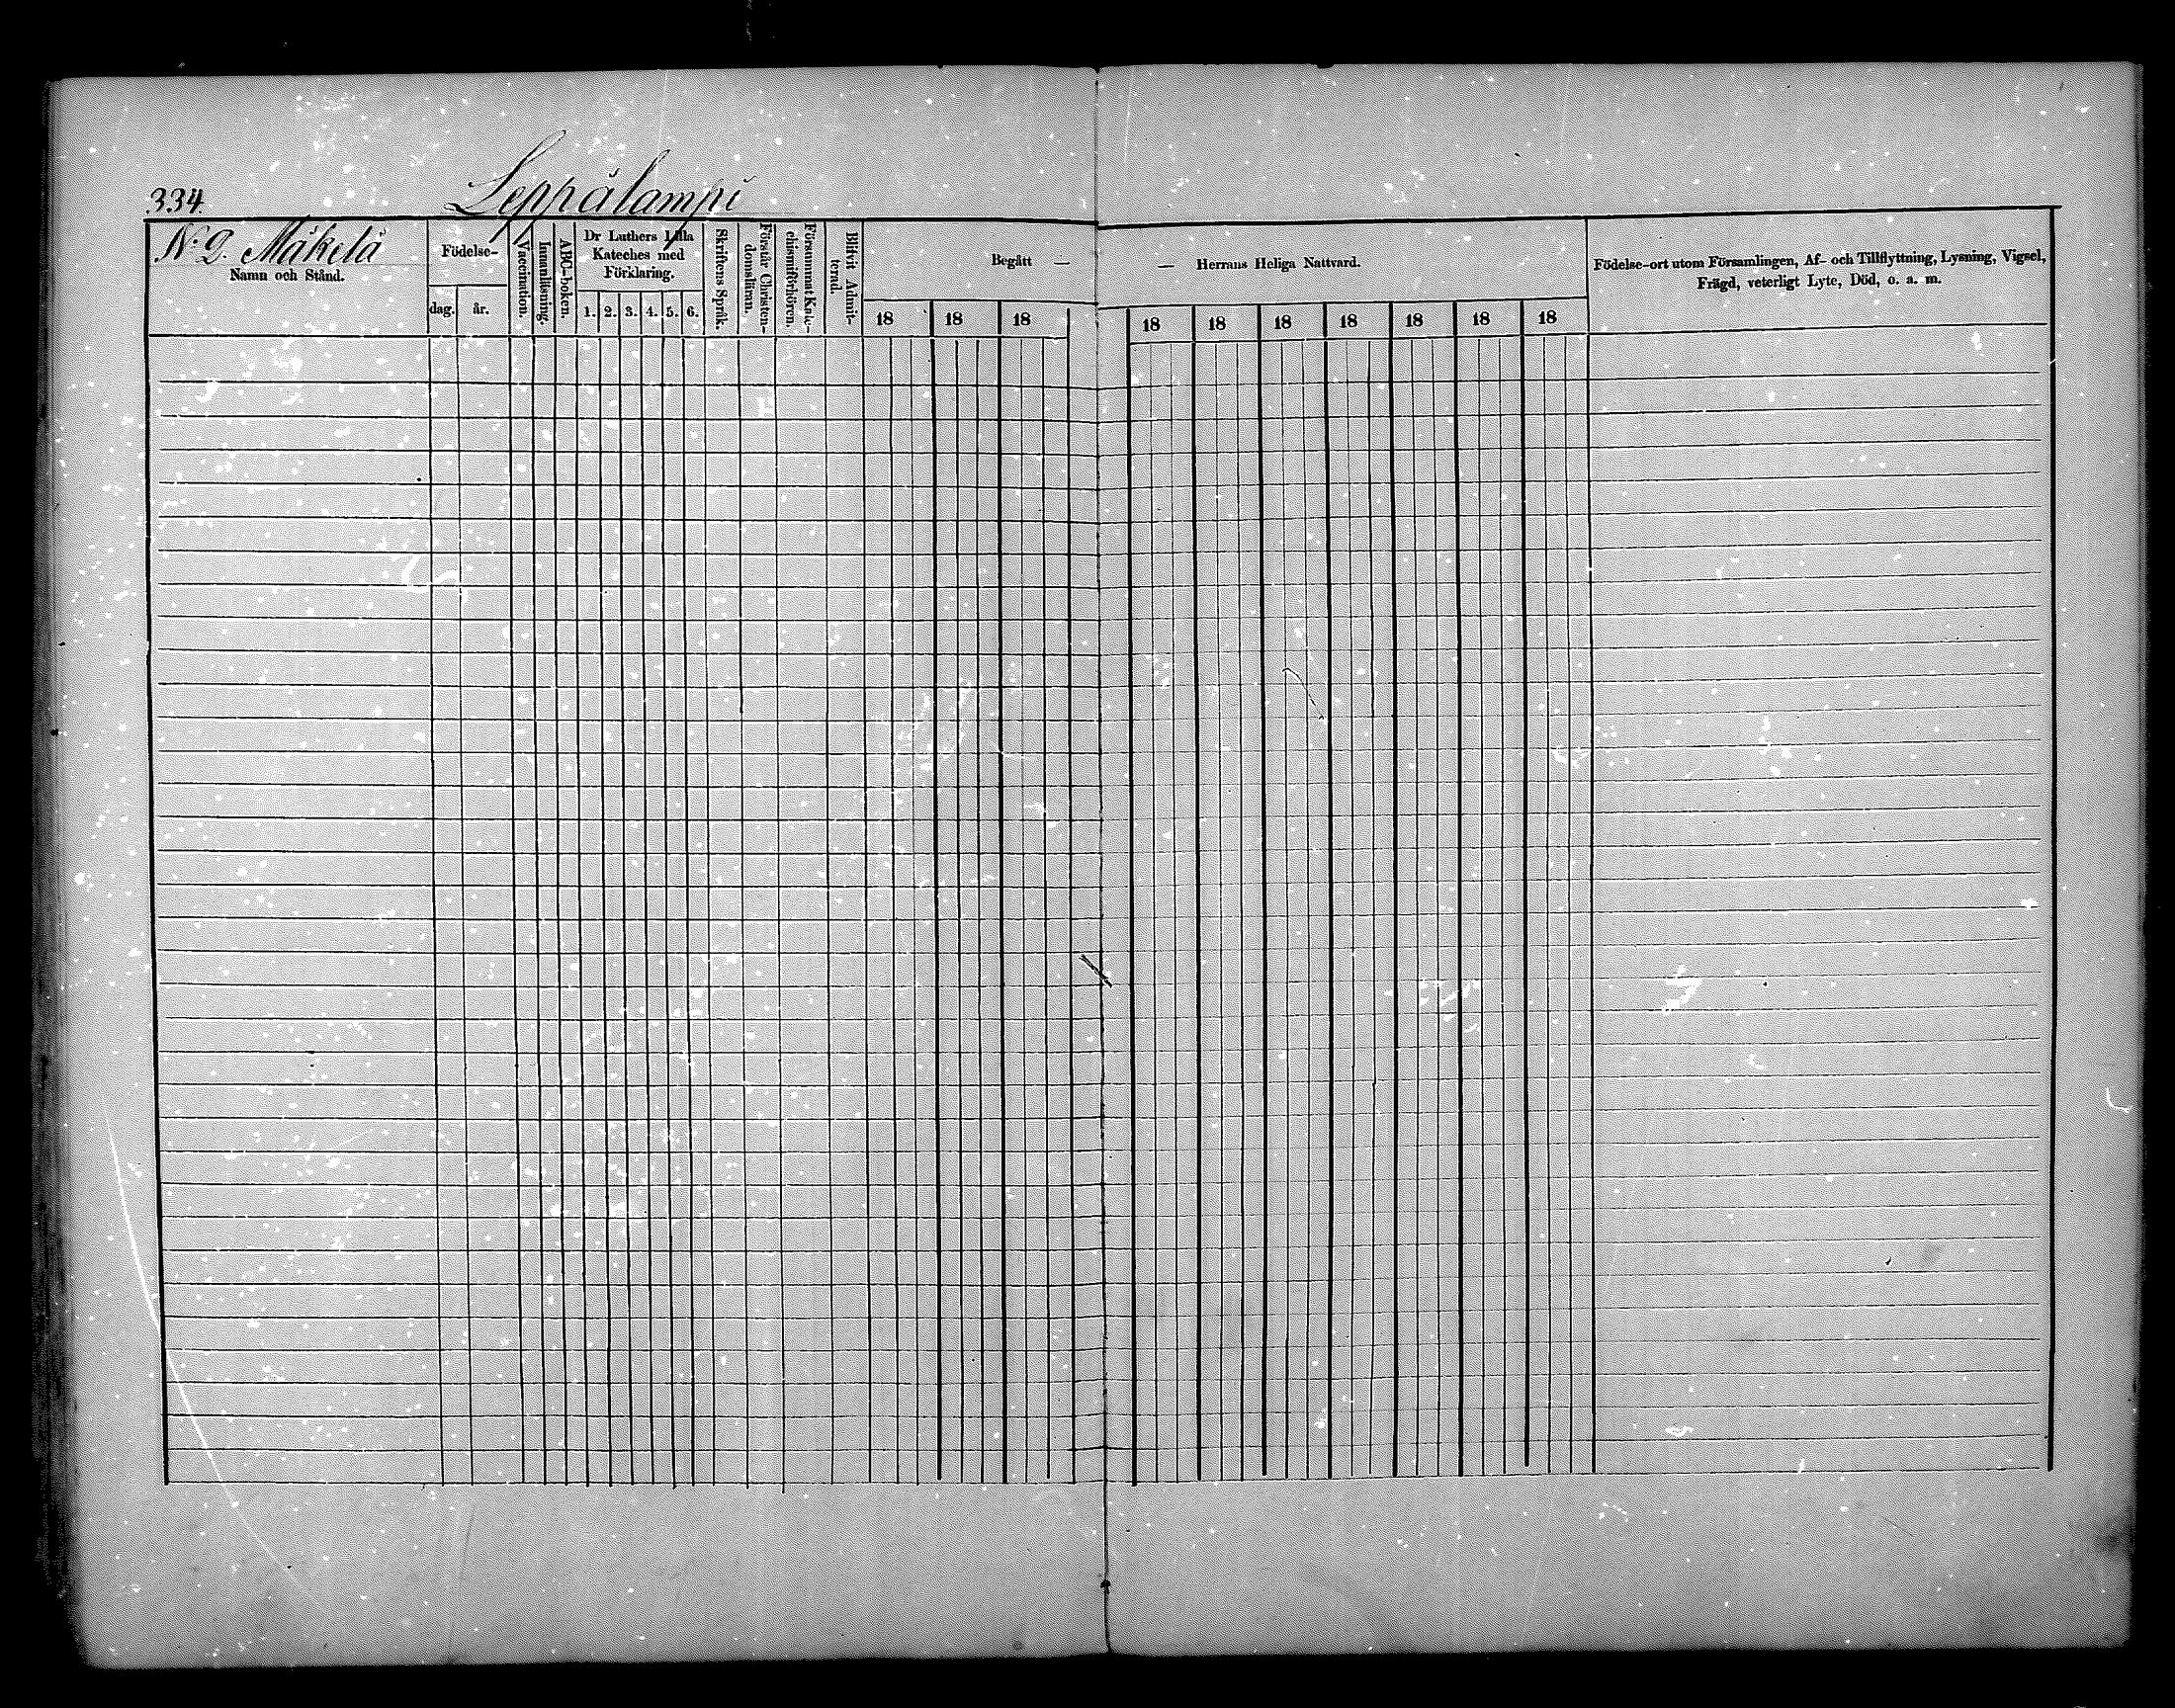 334.
Leppälampi
No 2. Mäkelä
Namn och Stånd.
Födelse-
dag.
år.
Vaccination.
Innanläsning.
ABC-boken.
Dr Luthers Lilla
Kateches med
Förklaring.
1. 2. 3. 4. 5. 6.
Skriftens Språk.
Förstår Christen-
domsläran.
Försummat Kate-
chismiförhören.
Blifvit Admit-
terad.
Begått —
18 18 18
— Herrans Heliga Nattvard.
18 18 18 18 18 18 18
Födelse-ort utom Församlingen, Af- och Tillflyttning, Lysning, Vigsel,
Frägd, veterligt Lyte, Död, o. a. m.